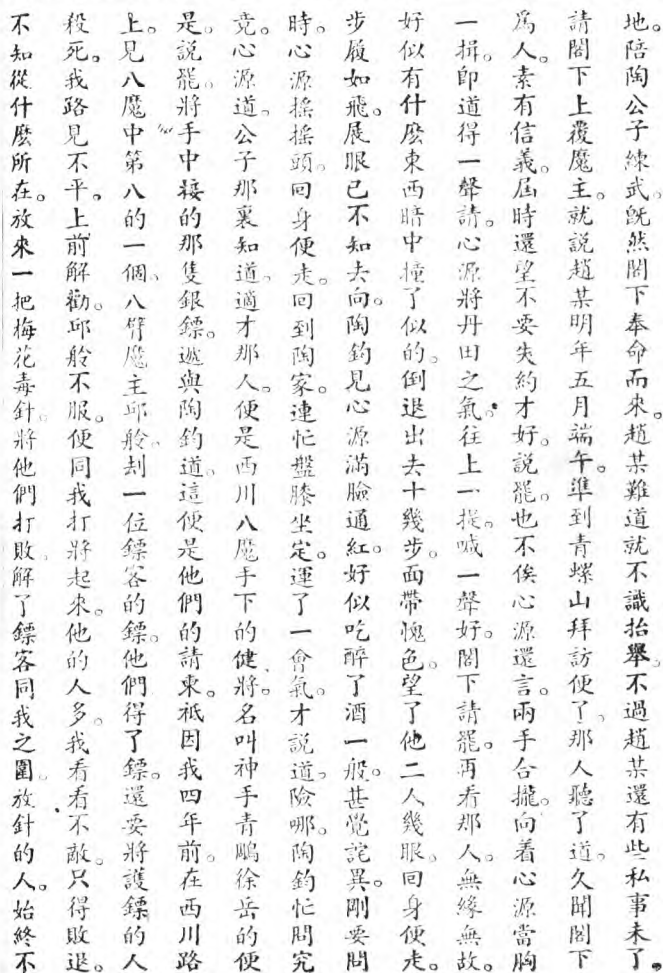 地。陪陶公子練武。旣然閣下奉命而來。趙某難道就不識抬舉。不過趙某還有些私事未了。
請閣下上覆魔主。就說趙某明年五月端午。準到青螺山拜訪便了。那人聽了道。久聞閣下
爲人。素有信義。屆時還望不要失約才好。說罷。也不俟心源還言。兩手合攏。向着心源當胸
一揖。卽道得一聲請。心源將丹田之氣。往上一提。喊一聲好。閣下請罷。再看那人。無緣無故。
好似有什麽東西暗中撞了似的。倒退出去十幾步。面帶愧色。望了他二人幾眼。回身便走。
步履如飛。展眼已不知去向。陶鈞見心源滿臉通紅。好似吃醉了酒一般。甚覺詫異。剛要問
時。心源搖搖頭。回身便走。回到陶家。連忙盤膝坐定。運了一會氣。才說道。險哪。陶鈞忙問究
竟。心源道。公子那裏知道。適才那人。便是西川八魔手下的健將。名叫神手青鵰徐岳的便
是。說罷。將手中接的那隻銀鏢。遞與陶鈞道。這便是他們的請柬。祗因我四年前。在西川路
上。見八魔中第八的一個。八臂魔主邱舲。刦一位鏢客的鏢。他們得了鏢。還要將護鏢的人
殺死。我路見不平。上前解勸。邱舲不服。便同我打將起來。他的人多。我看看不敵。只得敗退。
不知從什麽所在。放來一把梅花毒針。將他們打敗。解了鏢客同我之圍。放針的人。始終不